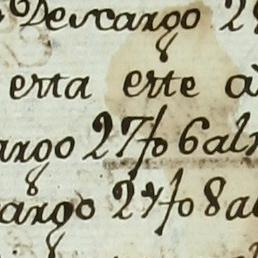 Descargo 2
esta este a
argo 27fo 6al
argo 27fo 8al